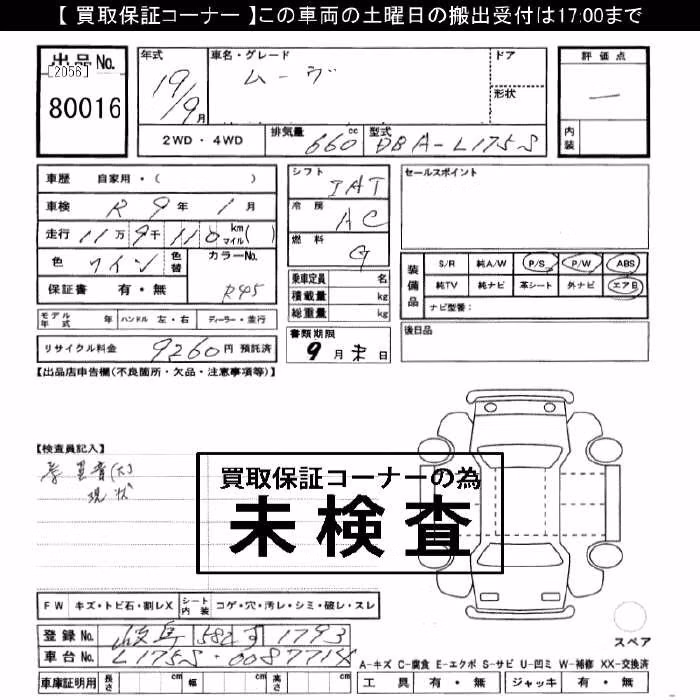 【 買取保証コーナー 】この車両の土曜日の搬出受付は17:00まで
出品No.
[2056]
80016
年式
19/9月
車名・グレード
ムーヴ
ドア
形状
評価点
—
内装
2WD・4WD
排気量 660 cc
型式 DBA-L175S
車歴 自家用・( )
車検 R9年1月
走行 11万9千110 km マイル( )
色 ワイン 色替
カラーNo. R45
保証書 有・無
モデル年式 年 ハンドル 左・右 ディーラー・並行
リサイクル料金 9260円 預託済
シフト IAT
冷房 AC
燃料 G
乗車定員 名
積載量 kg
総重量 kg
書類期限
9月末日
セールスポイント
装備品
S/R 純A/W P/S P/W ABS
純TV 純ナビ 革シート 外ナビ エアB
ナビ型番:
後日品
【出品店申告欄(不良箇所・欠品・注意事項等)】
【検査員記入】
異音(大)
現状
買取保証コーナーの為
未検査
FW キズ・トビ石・割レX
シート内装 コゲ・穴・汚レ・シミ・破レ・スレ
登録No. 岐阜 582 す 1793
車台No. L175S-0087715
車庫証明用 長さ cm 幅 cm 高さ cm
スペア
A-キズ C-腐食 E-エクボ S-サビ U-凹ミ W-補修 XX-交換済
工具 有・無 ジャッキ 有・無